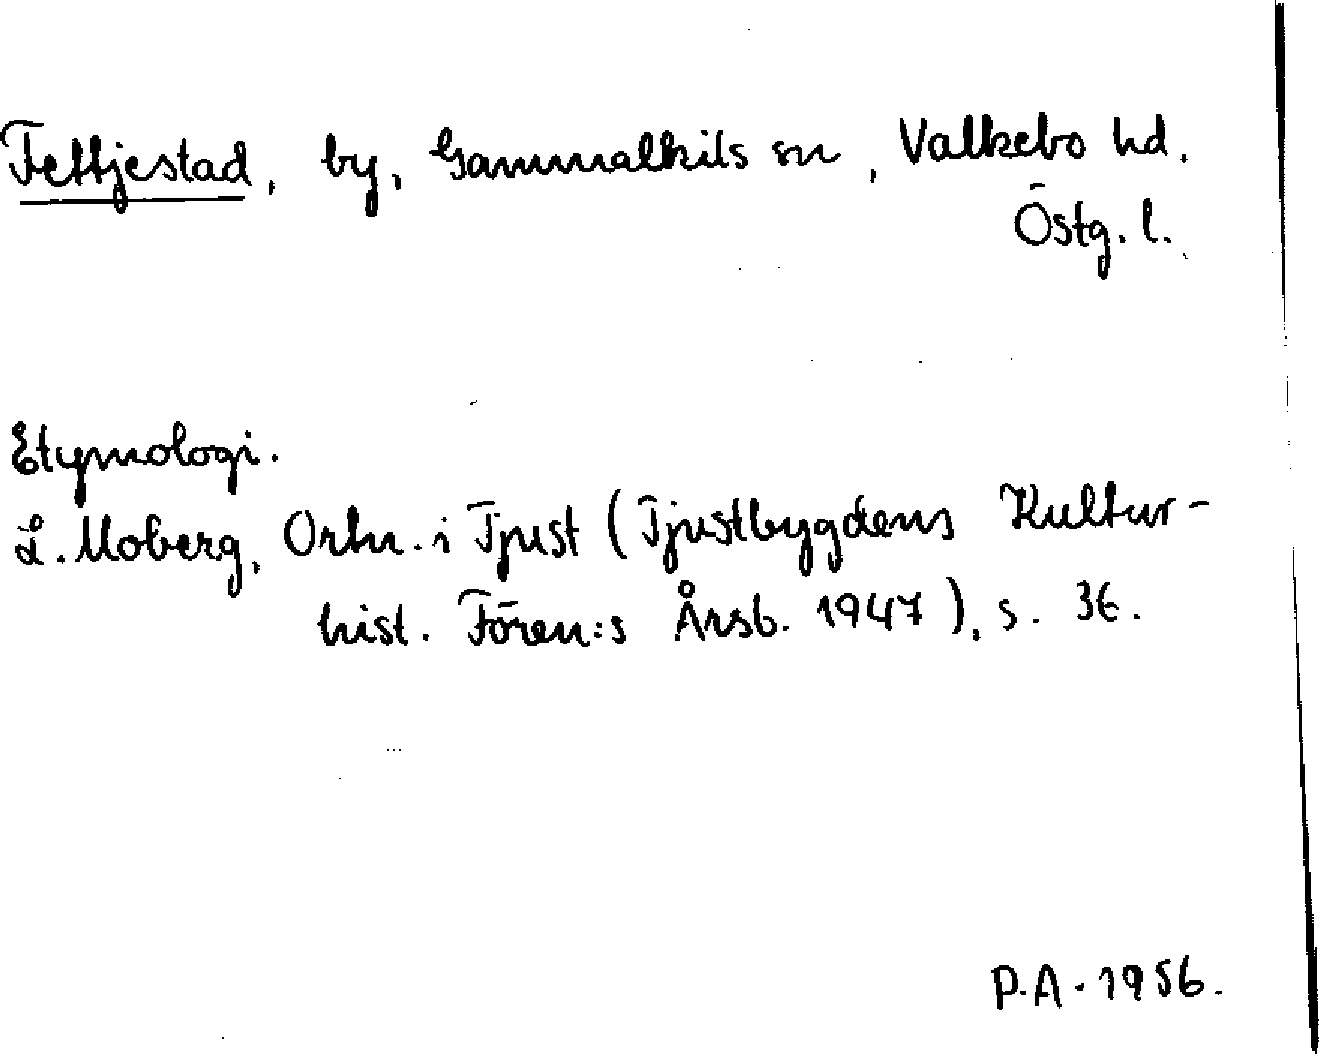 Fettjestad, by, Gammalkils sn, Valkebo hd.
Östg. l.
Etymologi.
L. Moberg, Ortn. i Tjust (Tjustbygdens Kultur-
hist. Fören:s Årsb. 1947), s. 36.
P.A. 1956.